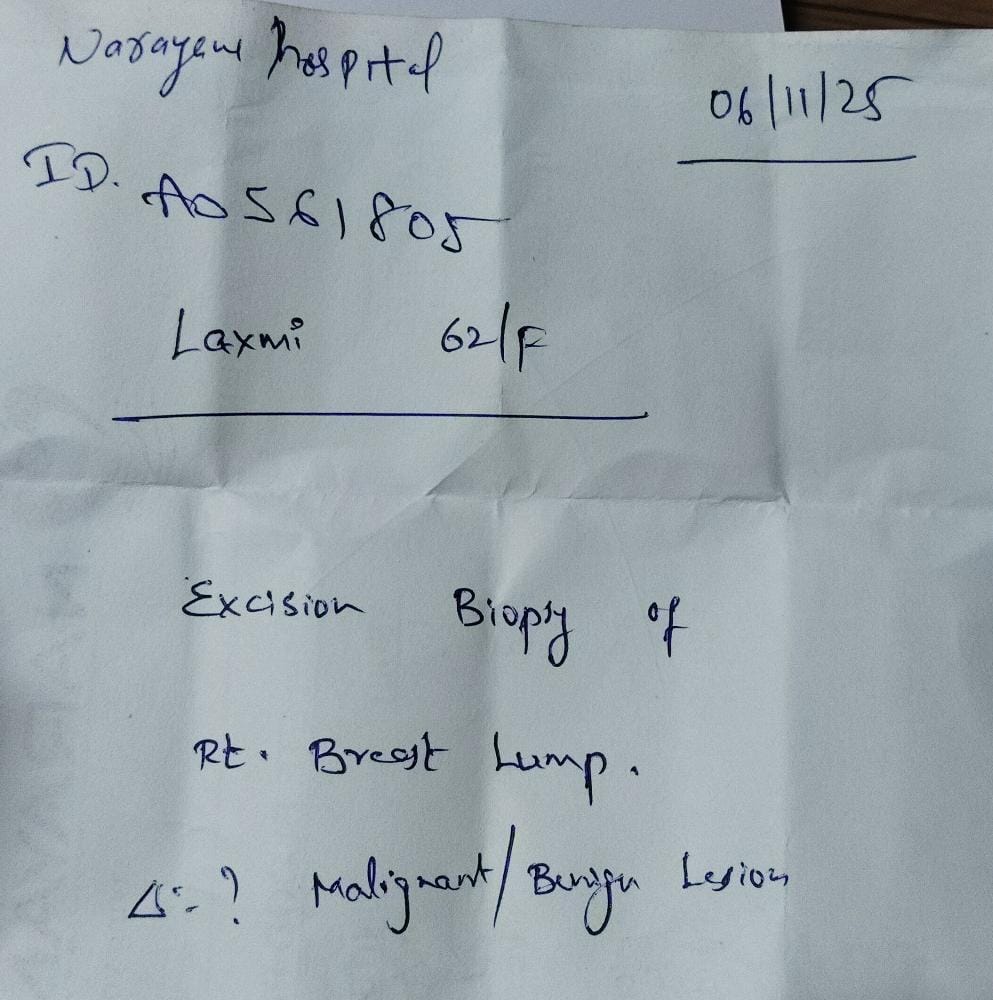 Narayani hospital
06/11/25
ID. A0561805
Laxmi 62/F
Excision Biopsy of
Rt. Breast Lump.
Δ:- ? Malignant/Benign Lesion